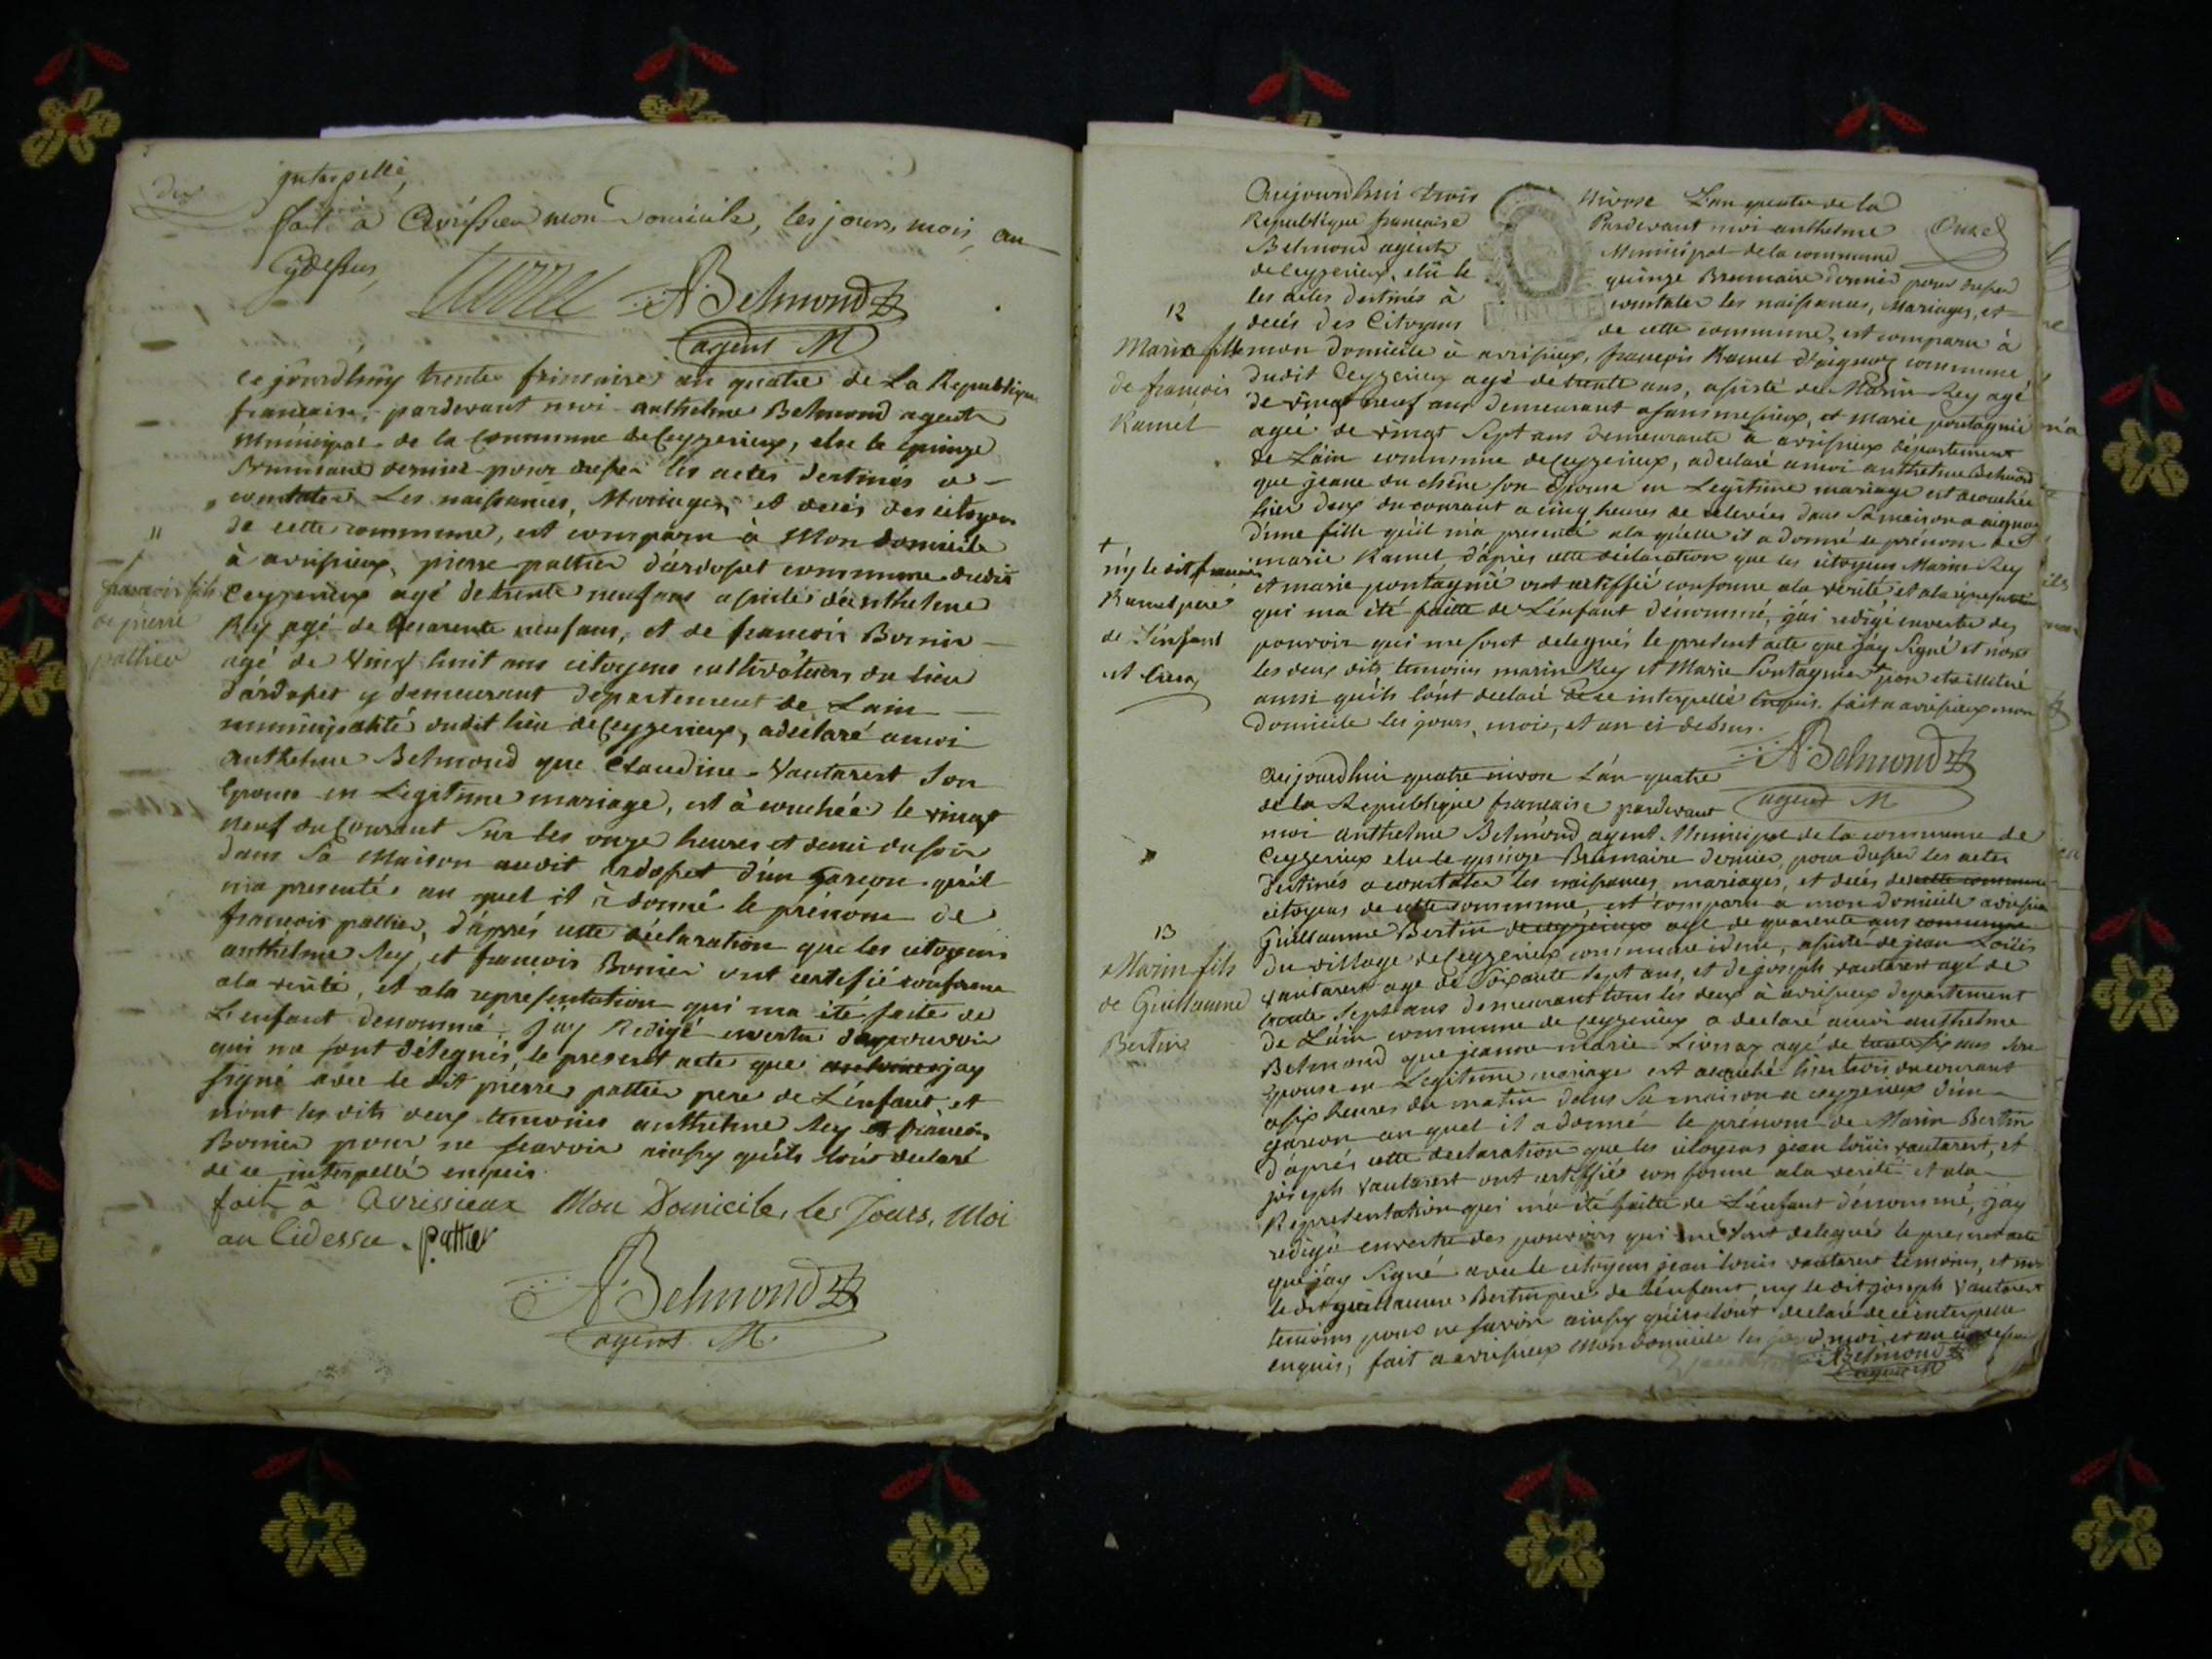 dix
interpellé,
fait à Avrissieu mon domicile, les jours, mois, an
Cydessus,
ABelmond
agent M
11
francois fils
de pierre
pattier
ce jourdhuy trente frimaire an quatre de La Republique
francaise, pardevant moi anthelme Belmond agent
Municipal de la Commune de Ceyzerieux, elu le quinze
Brumaire dernier pour dresser les actes destinés a
constater Les naissances, Mariages, et decés des citoyens
de cette commune, est comparu à Mon domicile
à avrisieux, pierre pattier d'ardosset commune dudit
Ceyzerieux agé de trente neuf ans assisté d'anthelme
Rey agé de quarente neuf ans, et de francois Bornier
agé de Vingt huit ans citoyens cultivateurs du lieu
d'ardosset y demeurant departement de Lain
municipalité dudit lieu de Ceyzerieux, a déclaré a moi
Anthelme Belmond que Claudine Vautarest Son
Epouse en Legitime mariage, est acouchée le vingt
neuf du Courant Sur les onze heures et demi du soir
dans Sa Maison audit ardosset d'un garcon qu'il
ma presenté au quel il à donné le prénom de
francois pattier, d'aprés cette declaration que les citoyens
anthelme Rey, et francois Bornier ont certifié conforme
ala verité, et ala representation qui ma été faite de
L'enfant denommé, j'ay Redigé envertu du pouvoir
qui me sont délegués, le present acte que jay
signé avec le dit pierre pattier pere de L'enfant, et
nont les dits deux temoins anthelme Rey et francois
Bornier pour ne scavoir ainsy qu'ils lont declaré
de ce interpellé enquis
fait à Avrissieux Mon Domicile, les Jours, Moi
an Cidessu. pattier
ABelmond
agent M.
Onze
Aujourdhui trois nivose L'an quatre de la
Republique francaise Pardevant moi anthelme
Belmond agent Municipal de la commune
de Ceyzerieux, elû le quinze Brumaire dernier pour dresser
les actes destinés à constater les naissances, Mariages, et
decés des Citoyens de cette commune, est comparu à
12
Marie fille
de francois
Ramel
mon domicile à avrisieux, francois Ramel d'aignoz commune
dudit Ceyzerieux agé de trente ans, assisté de Marin Rey agé
de vingt neuf ans demeurant a , et marie pontagnié
agée de vingt Sept ans demeurante à avrisieux département
de Lain commune de Ceyzerieux, a declaré a moi anthelme Belmond
que jeane du chêne son Epouse en Legitime mariage est acouchée
hier deux du courant a cinq heures de relevées dans Sa maison a aignoz
d'une fille qu'il m'a presenté ala quelle il a donné le prénom de
marie Ramel, d'aprés cette déclaration que les citoyens Marin Rey
et marie pontagnié ont certiffié conforme ala verité et ala representation
qui ma été faitte de L'enfant dénommé, j'ai redigé envertu des
pouvoir qui me sont delegués le present acte que j'ay Signé et non
les deux dits temoins marin Rey et Marie Pontagnier + pour etre illitéré
ainsi qu'ils lont declaré de ce interpellé enquis. fait a avrisieux mon
domicile les jours, mois, et an ci dessus.
+
n'y le dit francois
Ramel pere
de l'enfant
ABelmond
agent M
13
Marin fils
de Guillaume
Bertin
Aujourdhui quatre nivose L'an quatre
de la Republique francaise pardevant
moi anthelme Belmond agent Municipal de la commune de
Ceyzerieux elu le quinze Brumaire dernier, pour dresser les actes
destinés a constater les naissances, mariages, et decés des cette commune
citoyens de cette commune, est comparu a mon domicile avrisieu
Guillaume Bertin de ceyzerieux agé de quarente ans commune
du village de Ceyzerieux commune idem, assisté de jean Loüis
vautarest agé de Soixante sept ans, et de joseph vautarest agé de
trente Sept ans demeurant tous lés deux à avrisieux departement
de Lain commune de Ceyzerieux a declaré a moi anthelme
Belmond que jeanne marie Livnaz agé de trente six ans son
Epouse en Legitime mariage est acouché hier trois du courant
a six heures du matin dans Sa maison a ceyzerieux d'un
garcon au quel il a donné le prénom de Marin Bertin
d'aprés cette declaration que les citoyens jean loüis vautarest, et
joseph vautarest ont certiffié conforme ala verité et ala
Representation qui m'a été faitte de L'enfant dénommé, j'ay
redigé envertu des pouvoirs qui me sont delegué le present acte
que j'ay Signé avec le citoyens jean louis vautarest temoins, et non
le dit guillaume Bertin pere de l'enfant, ny le dit joseph Vautarest
temoins pour ne savoir ainsy qu'ils lont declaré de ce interpellé
enquis, fait a avrisieux Mon domicile les jour, moi, et an ci dessus
ABelmond
agent M